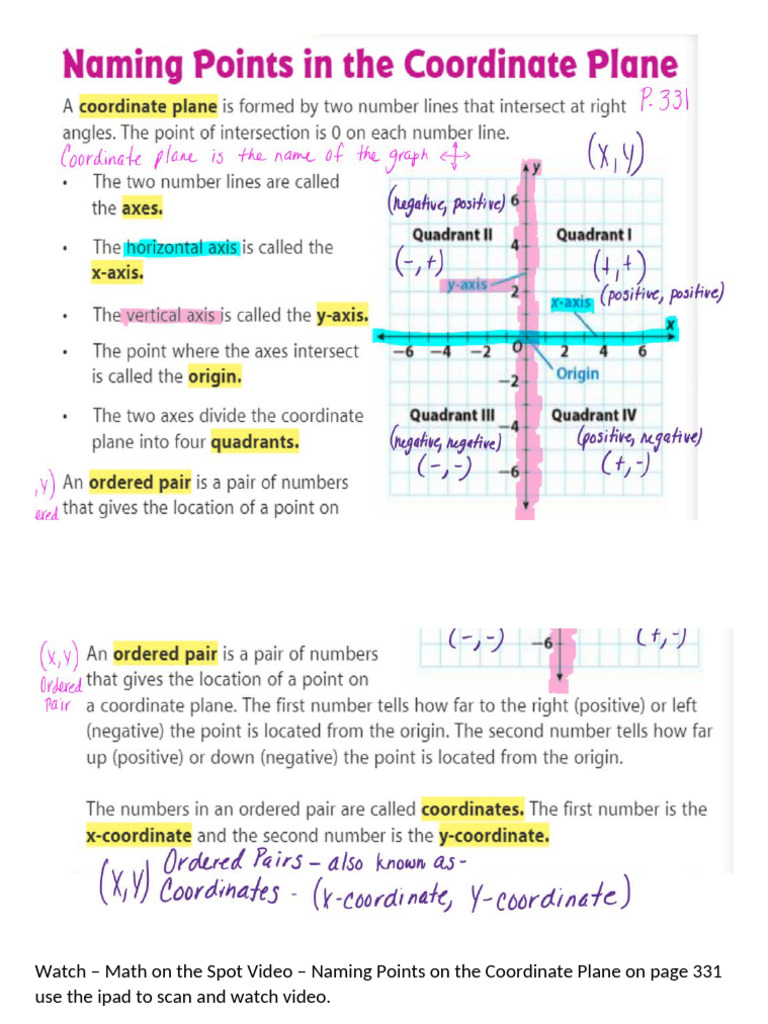 Naming Points in the Coordinate Plane
A coordinate plane is formed by two number lines that intersect at right P. 331
angles. The point of intersection is 0 on each number line.
Coordinate plane is the name of the graph
(x, y)
• The two number lines are called
the axes.
• The horizontal axis is called the
x-axis.
• The vertical axis is called the y-axis.
• The point where the axes intersect
is called the origin.
• The two axes divide the coordinate
plane into four quadrants.
,y) An ordered pair is a pair of numbers
ered that gives the location of a point on
y
(negative, positive) 6
Quadrant II Quadrant I
4
(-, +) (+, +)
y-axis 2 (positive, positive)
x-axis
x
-6 -4 -2 0 2 4 6
-2 Origin
Quadrant III Quadrant IV
-4
(negative, negative) (positive, negative)
(-, -) (+, -)
-6
(-, -) -6 (+, -)
(x, y) An ordered pair is a pair of numbers
Ordered that gives the location of a point on
Pair a coordinate plane. The first number tells how far to the right (positive) or left
(negative) the point is located from the origin. The second number tells how far
up (positive) or down (negative) the point is located from the origin.
The numbers in an ordered pair are called coordinates. The first number is the
x-coordinate and the second number is the y-coordinate.
(x, y) Ordered Pairs – also known as-
Coordinates - (x-coordinate, y-coordinate)
Watch – Math on the Spot Video – Naming Points on the Coordinate Plane on page 331
use the ipad to scan and watch video.